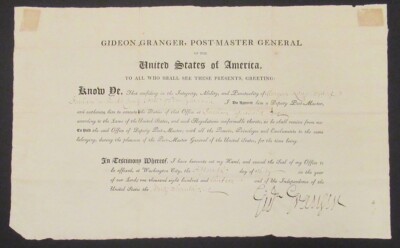 GIDEON GRANGER, POST-MASTER GENERAL
OF THE
United States of America.
TO ALL WHO SHALL SEE THESE PRESENTS, GREETING:
Know Ye, That confiding in the Integrity, Ability, and Punctuality of
I Do Appoint him a Deputy Post-Master,
and authorize him to execute the Duties of that Office at
according to the Laws of the United States, and such Regulations conformable thereto, as he shall receive from me:
To Hold the said Office of Deputy Post-Master, with all the Powers, Privileges and Emoluments to the same
belonging, during the pleasure of the Post-Master General of the United States, for the time being.
In Testimony Whereof, I have hereunto set my Hand, and caused the Seal of my Office to
be affixed, at Washington City, the day of in the year
of our Lord one thousand eight hundred and and of the Independence of the
United States the
Gid Granger